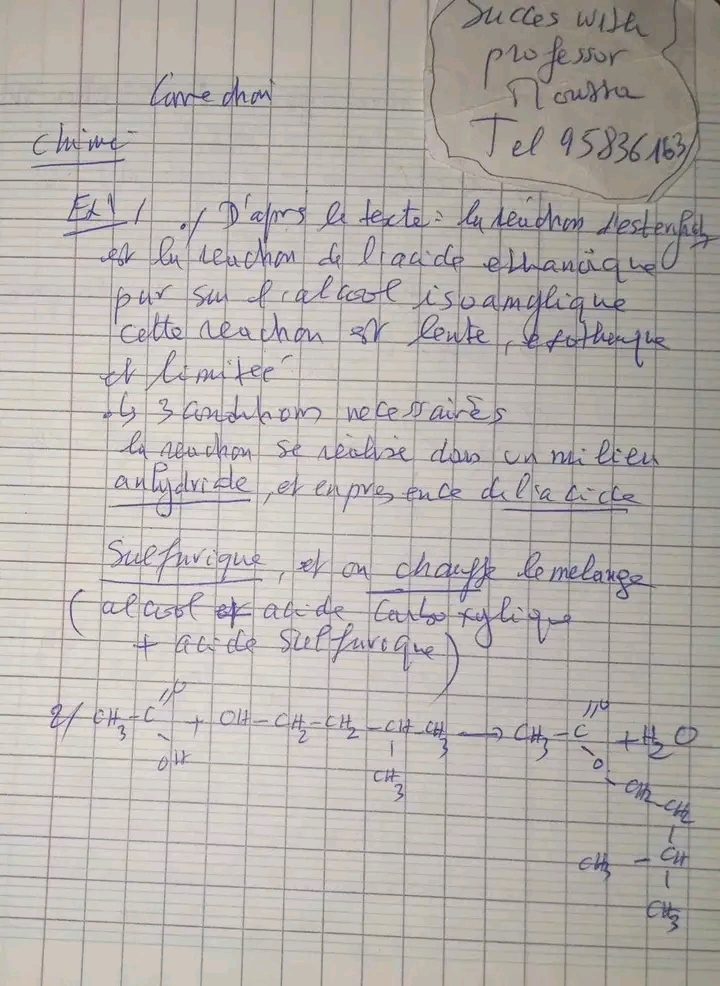 Succes with
professor
Moussa
Tel 95836163
Correction
Chimie
EX1 / ./ D'après le texte: la réaction d'esterific
est la reaction de l'acide ethanoïque
pur sur l'alcool isoamylique
cette reaction est lente, exothermique
et limitée
↳ 3 conditions necessaires
la reaction se réalise dans un milieu
anhydride, et en presence de l'acide
Sulfurique, et on chauffe le melange
(alcool et acide Carboxylique
+ acide Sulfurique)
2/ CH3-C(=O)-OH + OH-CH2-CH2-CH(CH3)-CH3 → CH3-C(=O)-O-CH2-CH2-CH(CH3)-CH3 + H2O